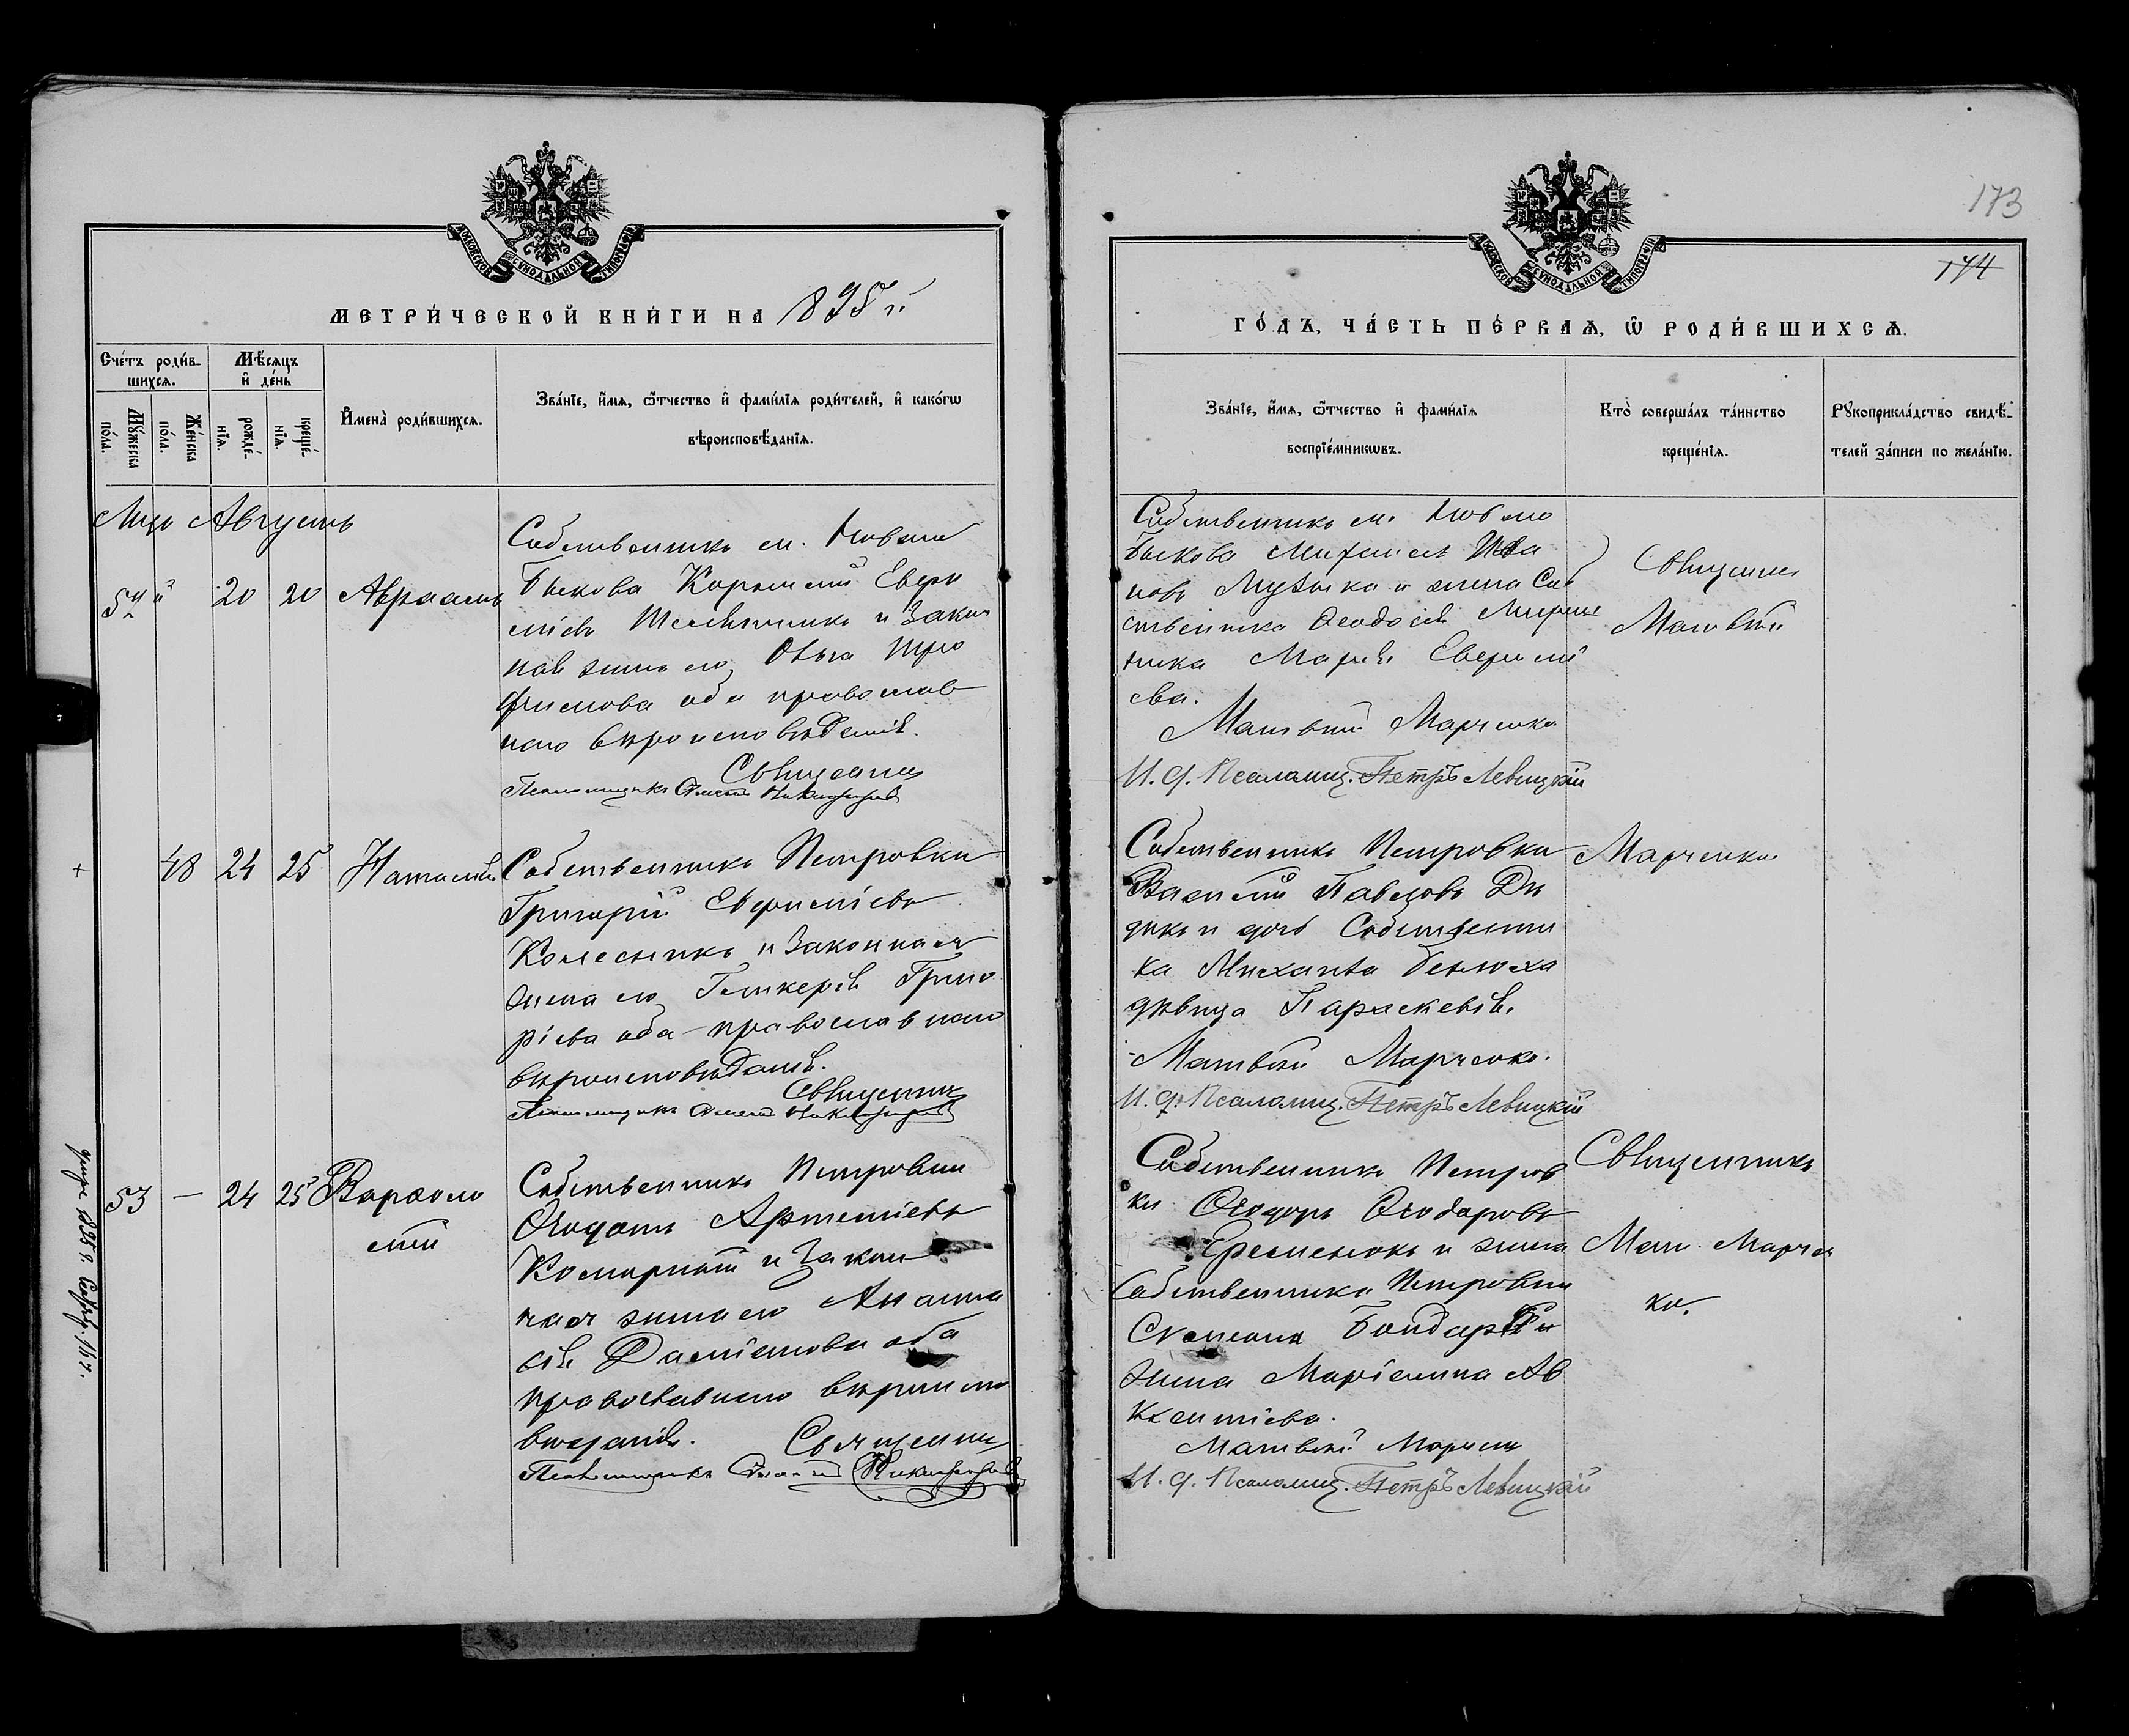 173
174
МОСКОВСКОЙ СѴНОДАЛЬНОЙ ТИПОГРАФІИ
МОСКОВСКОЙ СѴНОДАЛЬНОЙ ТИПОГРАФІИ
МЕТРИ́ЧЕСКОЙ КНИ́ГИ НА 1895 й
Сче́тъ роди́в-
шихсѧ.
Мꙋ́жеска
по́ла.
Же́нска
по́ла.
Мѣ́сѧцъ
и҆ де́нь
рожде́-
нїѧ.
креще́-
нїѧ.
И҆мена̀ роди́вшихсѧ.
Зва́нїе, и҆́мѧ, ѻ҆́тчество и҆ фами́лїѧ роди́телей, и҆ како́гѡ
вѣроисповѣ́данїѧ.
Мцъ Августъ
20 20 Авраамъ
Собственникъ м. Ново
Быкова Корнилій Евфи
міевъ и закон
ная жена его Ѳекла Тро
фимова оба православ
наго вѣроисповѣданія.
Священник
Псаломщикъ Алексій Никифоровъ
48 24 25 Наталія
Собственникъ Петровки
Григорій Евфиміевъ
Колесникъ и законная
жена его Гликерія Григо
рiева оба православнаго
вѣроисповѣданія.
Священник
Псаломщикъ Алексій Никифоровъ
53 — 24 25 Варѳоло
мей
Собственникъ Петровки
Ѳеодотъ Артеміевъ
и закон
ная жена его Анаста
сія Даміанова оба
православнаго вѣроиспо
вѣданія.
Священник
Псаломщикъ Алексій Никифоровъ
ГО́ДЪ, ЧА́СТЬ ПЕ́РВАѦ, Ѡ҆ РОДИ́ВШИХСѦ.
Зва́нїе, и҆́мѧ, ѻ҆́тчество и҆ фами́лїѧ
воспрїе́мникѡвъ.
Кто̀ соверша́лъ та́инство
креще́нїѧ.
Рꙋкоприкла́дство свидѣ́-
телей за́писи по жела́нїю.
Собственникъ м. Ново
Быкова Михаилъ Ива
новъ Музыка и жена Соб
ственника Ѳеодосія
Марія Евфимі
ева.
Матвѣй Марченко
И. ф. Псаломщ. Петръ Левицкій
Священник
Матвѣй
Собственникъ Петровки
Василій Павловъ Ди
дикъ и дочь Собственни
ка Михаила
дѣвица Параскевія.
Матвѣй Марченко.
И. ф. Псаломщ. Петръ Левицкій
Марченко
Собственникъ Петров
ки Ѳеодоръ Ѳеодоровъ
Еременокъ и жена
Собственника Петровки
Симеона
жена Маріамна Ав
ксентіева.
Матвѣй Марчен
И. ф. Псаломщ. Петръ Левицкій
Священникъ
Матв. Марчен
ко.